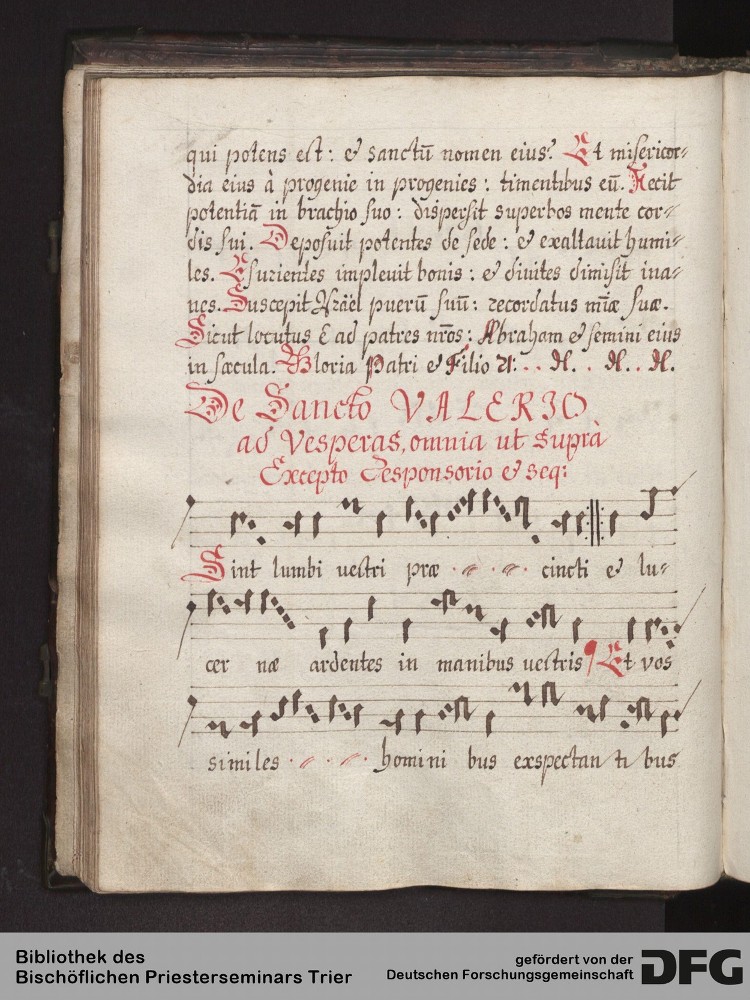 qui potens est: & sanctū nomen eius? Et misericor-
dia eius à progenie in progenies: timentibus eū. Fecit
potentiā in brachio suo: dispersit superbos mente cor-
dis sui. Deposuit potentes de sede: & exaltauit humi-
les. Esurientes impleuit bonis: & diuites dimisit ina-
nes. Suscepit Israël puerū suū: recordatus mīæ suæ.
Sicut locutus ē ad patres nros: Abraham & semini eius
in sæcula. Gloria Patri & Filio
De Sancto VALERIO
ad Vesperas, omnia ut suprà
Excepto Responsorio & seq:
Sint lumbi uestri præ cincti & lu-
cer næ ardentes in manibus uestris Et vos
similes homini bus exspectan ti bus
Bibliothek des
Bischöflichen Priesterseminars Trier
gefördert von der
Deutschen Forschungsgemeinschaft
DFG